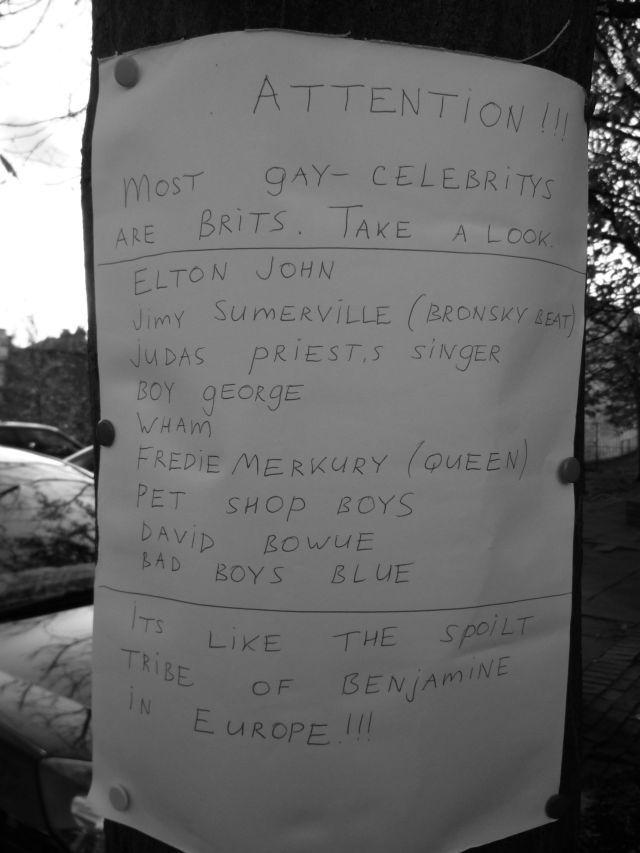 ATTENTION!!!
MOST GAY- CELEBRITYS
ARE BRITS. TAKE A LOOK.
ELTON JOHN
JIMY SUMERVILLE (BRONSKY BEAT)
JUDAS PRIEST,S SINGER
BOY GEORGE
WHAM
FREDIE MERKURY (QUEEN)
PET SHOP BOYS
DAVID BOWUE
BAD BOYS BLUE
ITS LIKE THE SPOILT
TRIBE OF BENJAMINE
IN EUROPE!!!